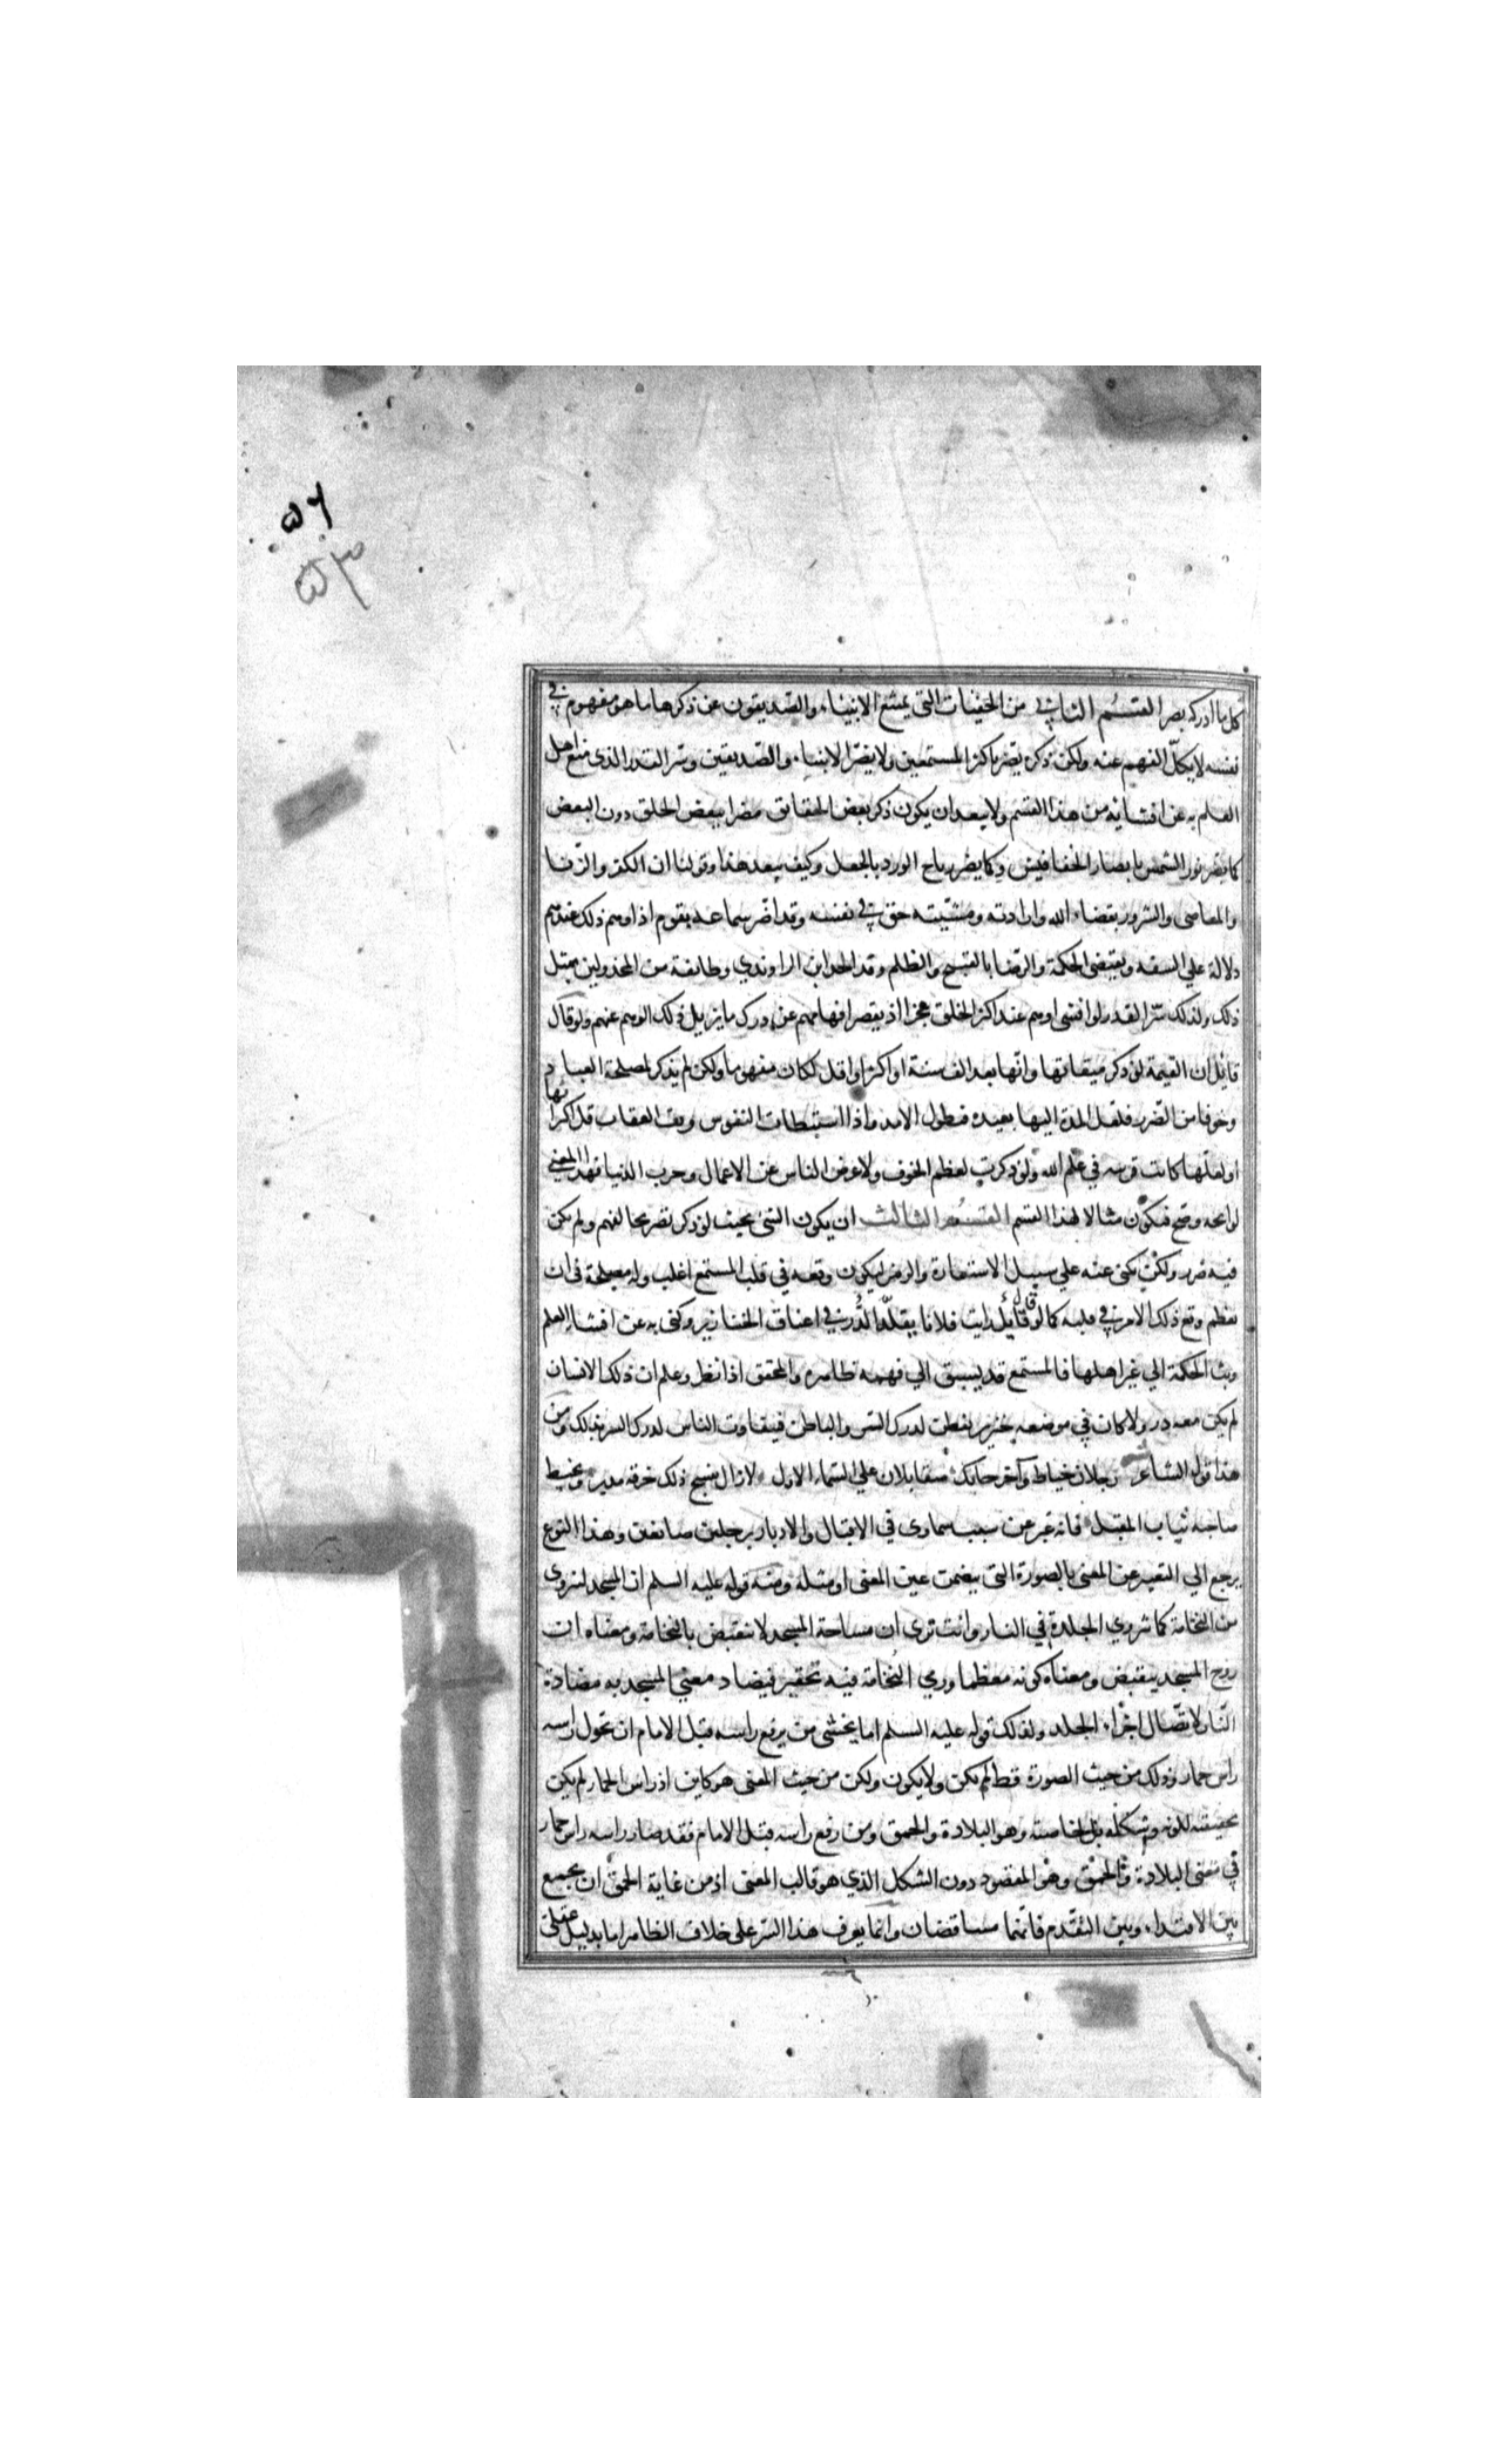 ٥٦
٥٣
كل ما ادركه بصر القسم الثاني من الخفيات التي يمتنع الانبياء والصديقون عن ذكرها ما هو مفهوم في
نفسه لا يكلّ الفهم عنه ولكن ذكره يضر باكثر المستمعين ولا يضرّ الانبياء والصديقين وسر القدر الذي منع اهل
العلم به عن افشائه من هذا القسم ولا يبعد ان يكون ذكر بعض الحقائق مضرا ببعض الخلق دون البعض
كما يضر نور الشمس بابصار الخفافيش وكما يضر رياح الورد بالجعل وكيف يبعد هذا وقولنا ان الكفر والزنا
والمعاصي والشرور بقضاء الله وارادته ومشيّته حق في نفسه وقد اضّر سماعه بقوم اذ اوهم ذلك عندهم
دلالة علي السفه ونقيض الحكمة والرضا بالقبيح والظلم وقد الحد ابن الراوندي وطائفة من المخذولين بمثل
ذلك ولذلك سّر القدر لو افشى اوهم عند اكثر الخلق عجزا اذ يقصر افهامهم عن درك ما يزيل ذلك الوهم عنهم ولو قال
قائل ان القيمة لو ذكر ميقاتها وانّها بعد الف سنة او اكثر او اقل لكان مفهوما ولكن لم يذكر لمصلحة العباد
وخوفا من الضرر فلعل المدة اليها بعيده فيطول الامد واذا استبطات النفوس وقت العقاب قل اكتراثها
او لعلّها كانت قريبه في علم الله ولو ذكرت لعظم الخوف ولاعرض الناس عن الاعمال وخرب الدنيا فهذا المعني
لو اتجه وصح فيكون مثالا لهذا القسم القسم الثالث ان يكون الشئ بحيث لو ذكر تصريحا لفهم ولم يكن
فيه ضرر ولكن يكنى عنه علي سبيل الاستعارة والرمز ليكون وقعه في قلب المستمع اغلب وله مصلحة في ان
يعظم وقع ذلك الامر في قلبه كما لو قال قائل رايت فلانا يقلّد الدُّر في اعناق الخنازير وكنى به عن افشاء العلم
وبث الحكمة الي غير اهلها فالمستمع قد يسبق الي فهمه ظاهره والمحقق اذا نظر وعلم ان ذلك الانسان
لم يكن معه در ولا كان في موضعه خنزير تفطن لدرك السّر والباطن فيتفاوت الناس لدرك السر بذلك ومن
هذا قول الشاعر رجلان خياط وآخر حايك متقابلان علي السّماء الاول لا زال ينسج ذلك خرقه مدبر ويخيط
صاحبه ثياب المقبل فانه عبر عن سبب سماوي في الاقبال والادبار برجلين صانعين وهذا النوع
يرجع الي التعبير عن المعنى بالصورة التي يتضمن عين المعنى او مثله ومنه قوله عليه السلم ان المسجد لينزوى
من النخامة كما تنزوي الجلدة في النار وانت ترى ان مساحة المسجد لا تنقبض بالنخامة ومعناه ان
روح المسجد ينقبض ومعناه كونه معظما ورمي النُخامة فيه تحقير فيضاد معني المسجديه مضادة
النّار لاتصّال اجزاء الجلد ولذلك قوله عليه السلم اما يخشى من يرفع راسه قبل الامام ان تحول راسه
راس حمار وذلك من حيث الصورة قط لم يكن ولا يكون ولكن من حيث المعنى هو كاين اذ راس الحمار لم يكن
بحقيقته للونه وشكله بل لخاصته وهو البلادة والحمق ومن رفع راسه قبل الامام فقد صار راسه راس حمار
في معنى البلادة والحمق وهو المقصود دون الشكل الذي هو قالب المعنى اذ من غاية الحمق ان يجمع
بين الاقتداء وبين التقدم فانّهما متناقضان وانما يعرف هذا السّر على خلاف الظاهر اما بدليل عقلى